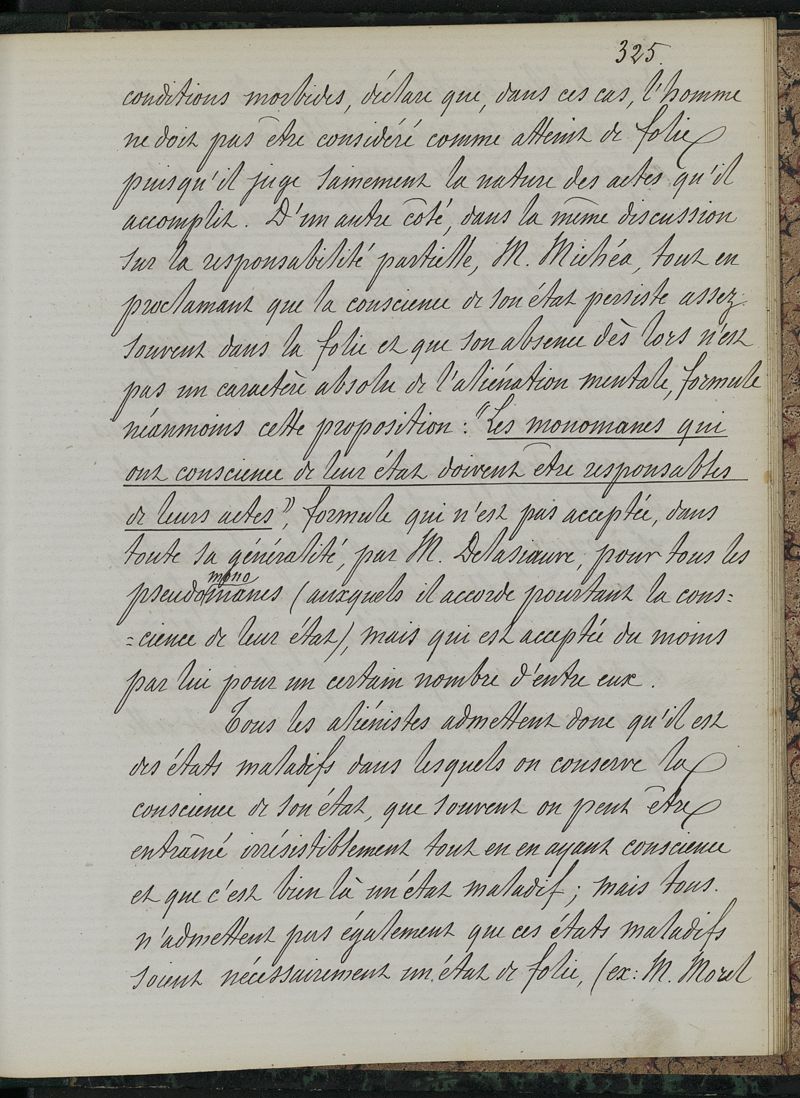 325.
conditions morbides, déclare que, dans ces cas, l'homme
ne doit pas être considéré comme atteint de folie
puisqu'il juge sainement la nature des actes qu'il
accomplit. D'un autre côté, dans la même discussion
sur la responsabilité partielle, M. Michéa, tout en
proclamant que la conscience de son état persiste assez
souvent dans la folie et que son absence dès lors n'est
pas un caractère absolu de l'aliénation mentale, formule
néanmoins cette proposition : "Les monomanes qui
ont conscience de leur état doivent être responsables
de leurs actes", formule qui n'est pas acceptée, dans
toute sa généralité, par M. Delasiauve, pour tous les
mono
pseudomanes (auxquels il accorde pourtant la cons=
=cience de leur état), mais qui est acceptée du moins
par lui pour un certain nombre d'entre eux.
Tous les aliénistes admettent donc qu'il est
des états maladifs dans lesquels on conserve la
conscience de son état, que souvent on peut être
entraîné irrésistiblement tout en en ayant conscience
et que c'est bien là un état maladif ; mais tous.
n'admettent pas également que ces états maladifs
soient nécessairement un état de folie, (ex: M. Morel